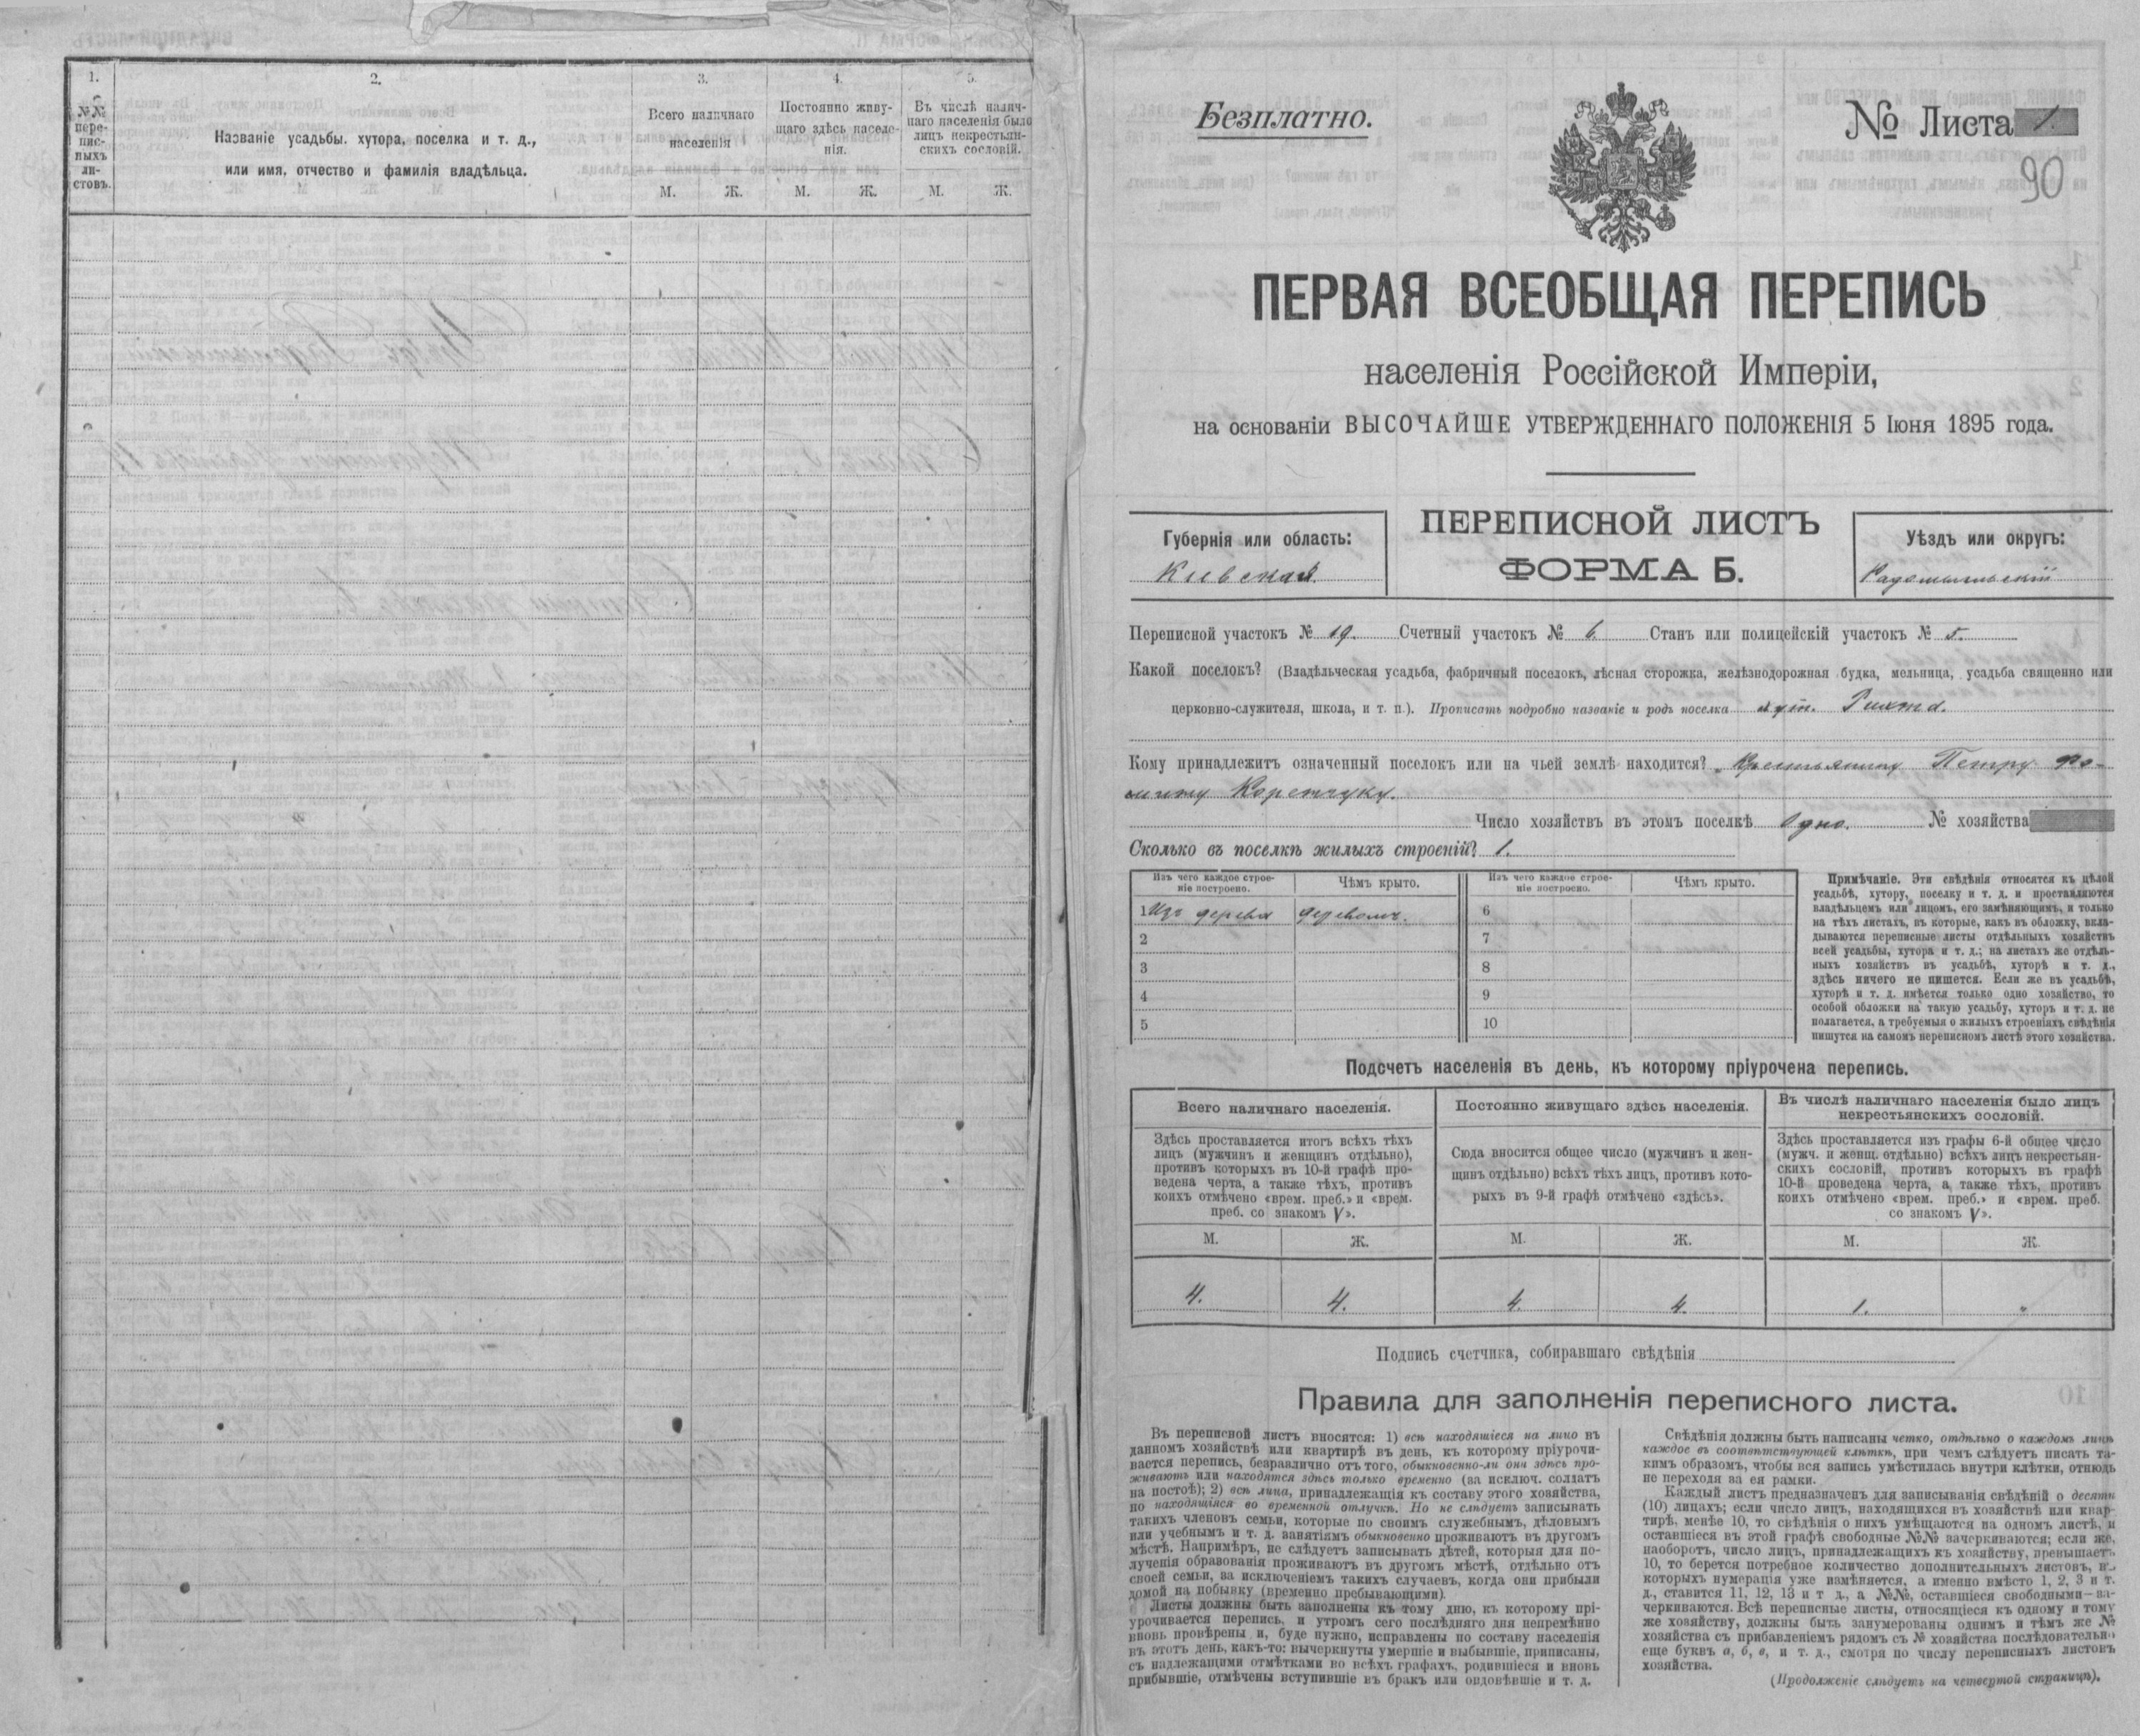 1.
2.
3.
4.
5.
№№ пере-
пис-
ныхъ
ли-
стовъ.
Названіе усадьбы, хутора, поселка и т. д.,
или имя, отчество и фамилія владѣльца.
Всего наличнаго
населенія
Постоянно живу-
щаго здѣсь населе-
нія.
Въ числѣ налич-
наго населенія было
лицъ некрестьян-
скихъ сословій.
М. Ж. М. Ж. М. Ж.
Безплатно.
№ Листа 1.
90
ПЕРВАЯ ВСЕОБЩАЯ ПЕРЕПИСЬ
населенія Россійской Имперіи,
на основаніи ВЫСОЧАЙШЕ УТВЕРЖДЕННАГО ПОЛОЖЕНІЯ 5 Іюня 1895 года.
Губернія или область:
Кіевская
ПЕРЕПИСНОЙ ЛИСТЪ
ФОРМА Б.
Уѣздъ или округъ:
Радомысльскій
Переписной участокъ № 19. Счетный участокъ № 6. Станъ или полицейскій участокъ № 5.
Какой поселокъ? (Владѣльческая усадьба, фабричный поселокъ, лѣсная сторожка, желѣзнодорожная будка, мельница, усадьба священно или
церковно-служителя, школа, и т. п.). Прописать подробно названіе и родъ поселка хут. Рихта.
Кому принадлежитъ означенный поселокъ или на чьей землѣ находится? Крестьянину Петру Фо-
мичу Коретчуку.
Число хозяйствъ въ этомъ поселкѣ Одно. № хозяйства
Сколько въ поселкѣ жилыхъ строеній? 1.
Изъ чего каждое строе-
ніе построено.
Чѣмъ крыто.
Изъ чего каждое строе-
ніе построено.
Чѣмъ крыто.
1 Изъ дерева деревомъ. 6
2 7
3 8
4 9
5 10
Примѣчаніе. Эти свѣдѣнія относятся къ цѣлой
усадьбѣ, хутору, поселку и т. д. и проставляются
владѣльцемъ или лицомъ, его замѣняющимъ, и только
на тѣхъ листахъ, въ которые, какъ въ обложку, вкла-
дываются переписные листы отдѣльныхъ хозяйствъ
всей усадьбы, хутора и т. д.; на листахъ же отдѣль-
ныхъ хозяйствъ въ усадьбѣ, хуторѣ и т. д.,
здѣсь ничего не пишется. Если же въ усадьбѣ,
хуторѣ и т. д. имѣется только одно хозяйство, то
особой обложки на такую усадьбу, хуторъ и т. д. не
полагается, а требуемыя о жилыхъ строеніяхъ свѣдѣнія
пишутся на самомъ переписномъ листѣ этого хозяйства.
Подсчетъ населенія въ день, къ которому пріурочена перепись.
Всего наличнаго населенія.
Здѣсь проставляется итогъ всѣхъ тѣхъ
лицъ (мужчинъ и женщинъ отдѣльно),
противъ которыхъ въ 10-й графѣ про-
ведена черта, а также тѣхъ, противъ
коихъ отмѣчено «врем. преб.» и «врем.
преб. со знакомъ V».
Постоянно живущаго здѣсь населенія.
Сюда вносится общее число (мужчинъ и жен-
щинъ отдѣльно) всѣхъ тѣхъ лицъ, противъ кото-
рыхъ въ 9-й графѣ отмѣчено «здѣсь».
Въ числѣ наличнаго населенія было лицъ
некрестьянскихъ сословій.
Здѣсь проставляется изъ графы 6-й общее число
(мужч. и женщ. отдѣльно) всѣхъ лицъ некрестьян-
скихъ сословій, противъ которыхъ въ графѣ
10-й проведена черта, а также тѣхъ, противъ
коихъ отмѣчено «врем. преб.» и «врем. преб.
со знакомъ V».
М. Ж. М. Ж. М. Ж.
4. 4. 4. 4. 1. "
Подпись счетчика, собиравшаго свѣдѣнія
Правила для заполненія переписного листа.
Въ переписной листъ вносятся: 1) всѣ находящіеся на лицо въ
данномъ хозяйствѣ или квартирѣ въ день, къ которому пріурочи-
вается перепись, безразлично отъ того, обыкновенно-ли они здѣсь про-
живаютъ или находятся здѣсь только временно (за исключ. солдатъ
на постоѣ); 2) всѣ лица, принадлежащія къ составу этого хозяйства,
но находящіяся во временной отлучкѣ. Но не слѣдуетъ записывать
такихъ членовъ семьи, которые по своимъ служебнымъ, дѣловымъ
или учебнымъ и т. д. занятіямъ обыкновенно проживаютъ въ другомъ
мѣстѣ. Напримѣръ, не слѣдуетъ записывать дѣтей, которыя для по-
лученія образованія проживаютъ въ другомъ мѣстѣ, отдѣльно отъ
своей семьи, за исключеніемъ такихъ случаевъ, когда они прибыли
домой на побывку (временно пребывающими).
Листы должны быть заполнены къ тому дню, къ которому прі-
урочивается перепись, и утромъ сего послѣдняго дня непремѣнно
вновь провѣрены и, буде нужно, исправлены по составу населенія
въ этотъ день, какъ-то: вычеркнуты умершіе и выбывшіе, приписаны,
съ надлежащими отмѣтками во всѣхъ графахъ, родившіеся и вновь
прибывшіе, отмѣчены вступившіе въ бракъ или овдовѣвшіе и т. д.
Свѣдѣнія должны быть написаны четко, отдѣльно о каждомъ лицѣ
каждое въ соотвѣтствующей клѣткѣ, при чемъ слѣдуетъ писать та-
кимъ образомъ, чтобы вся запись умѣстилась внутри клѣтки, отнюдь
не переходя за ея рамки.
Каждый листъ предназначенъ для записыванія свѣдѣній о десяти
(10) лицахъ; если число лицъ, находящихся въ хозяйствѣ или квар-
тирѣ, менѣе 10, то свѣдѣнія о нихъ умѣщаются на одномъ листѣ, и
оставшіеся въ этой графѣ свободные №№ зачеркиваются; если же,
наоборотъ, число лицъ, принадлежащихъ къ хозяйству, превышаетъ
10, то берется потребное количество дополнительныхъ листовъ, въ
которыхъ нумерація уже измѣняется, а именно вмѣсто 1, 2, 3 и т.
д., ставится 11, 12, 13 и т д., а №№, оставшіеся свободными—за-
черкиваются. Всѣ переписные листы, относящіеся къ одному и тому
же хозяйству, должны быть занумерованы однимъ и тѣмъ же №
хозяйства съ прибавленіемъ рядомъ съ № хозяйства послѣдовательно
еще буквъ а, б, в, и т. д., смотря по числу переписныхъ листовъ
хозяйства.
(Продолженіе слѣдуетъ на четвертой страницѣ).